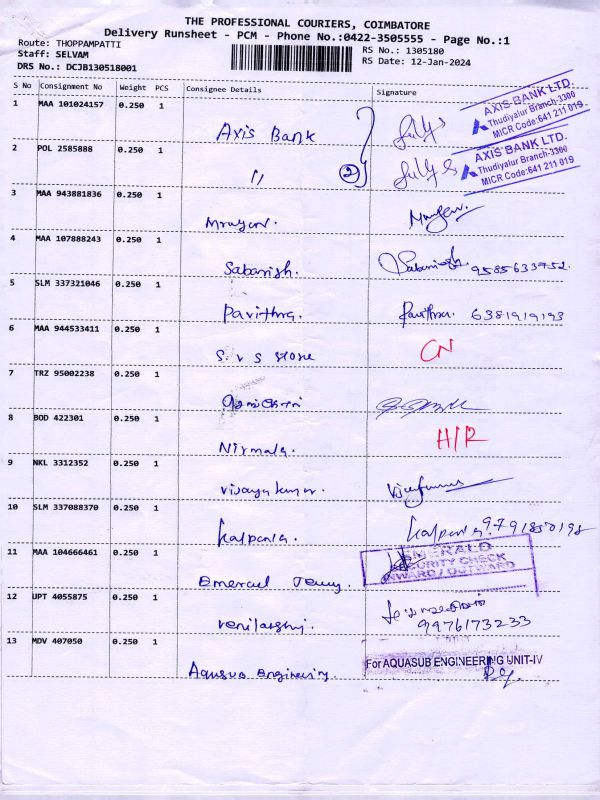 THE PROFESSIONAL COURIERS, COIMBATORE
Delivery Runsheet - PCM - Phone No.:0422-3505555 - Page No.:1
Route: THOPPAMPATTI
Staff: SELVAM
DRS No.: DCJB130518001
RS No.: 1305180
RS Date: 12-Jan-2024
S No Consignment No Weight PCS Consignee Details Signature
1 MAA 101024157 0.250 1 Axis Bank
AXIS BANK LTD.
Thudiyalur Branch-3300
MICR Code:641 211 019
2 POL 2585888 0.250 1 " 2
AXIS BANK LTD.
Thudiyalur Branch-3300
MICR Code:641 211 019
3 MAA 943881836 0.250 1
4 MAA 107888243 0.250 1 Sabarish. Sabarish.
5 SLM 337321046 0.250 1 Pavithra. Pavithra. 6381919193
6 MAA 944533411 0.250 1 S. V S Stone CN
7 TRZ 95002238 0.250 1
8 BOD 422301 0.250 1 Nirmala. H/R
9 NKL 3312352 0.250 1 Vijayakumar.
10 SLM 337088370 0.250 1 Kalpana. Kalpana.
11 MAA 104666461 0.250 1
EMERALD
SECURITY CHECK
INWARD / OUTWARD
12 UPT 4055875 0.250 1 9976173233
13 MDV 407050 0.250 1 Aquasub Engineering.
For AQUASUB ENGINEERING UNIT-IV